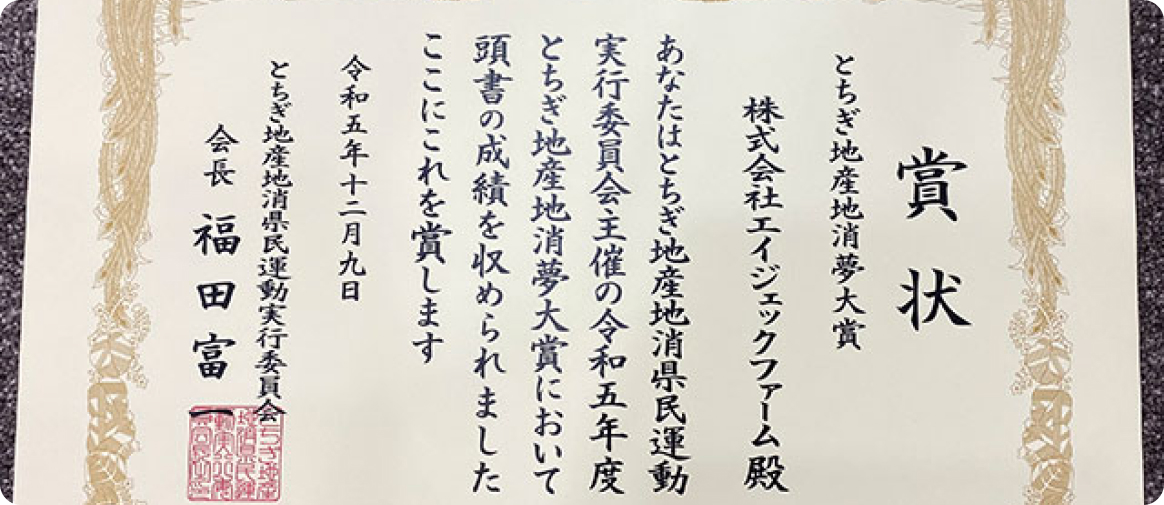 賞状
とちぎ地産地消夢大賞
株式会社エイジェックファーム殿
あなたはとちぎ地産地消県民運動
実行委員会主催の令和五年度
とちぎ地産地消夢大賞において
頭書の成績を収められました
ここにこれを賞します
令和五年十二月九日
とちぎ地産地消県民運動実行委員会
会長 福田富一